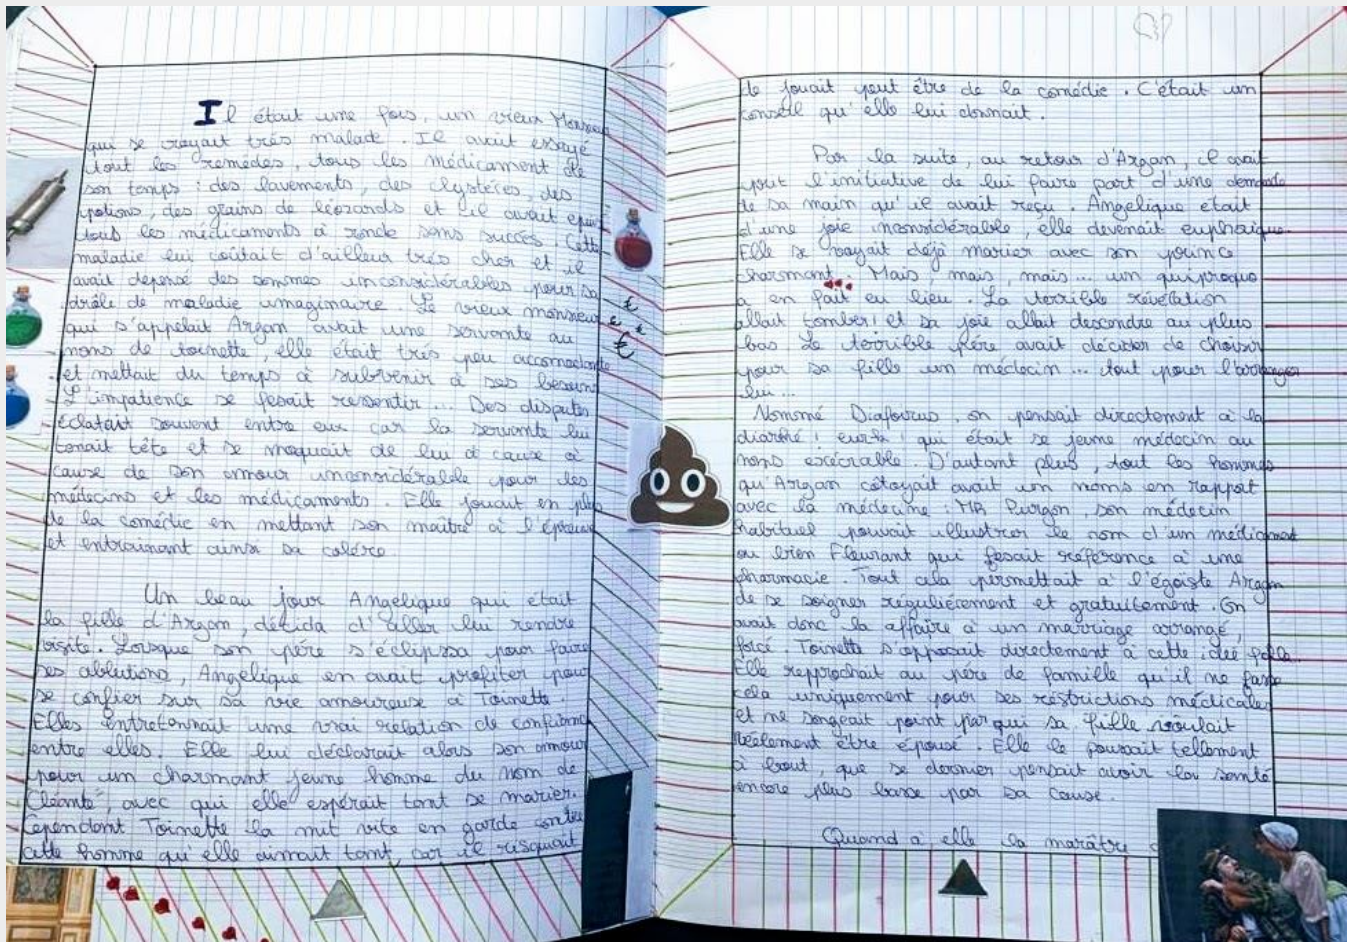 Il était une fois, un vieux Monsieur
qui se croyait très malade. Il avait essayé
tout les remèdes, tous les médicament de
son temps : des lavements, des clystères, des
potions, des grains de léozards et il avait
tous les médicaments à ronde sans succès. Cette
maladie lui coûtait d'ailleur très cher et il
avait depensé des sommes inconsidérables pour sa
drôle de maladie imaginaire. Le vieux monsieur
qui s'appelait Argan avait une servante au
noms de toinette, elle était très peu accomodante
et mettait du temps à subvenir à ses besoins
L'impatience se fesait ressentir ... Des disputes
éclatait souvent entre eux car la servante lui
tenait tête et se moquait de lui à cause à
cause de son amour inconsidérable pour les
médecins et les médicaments. Elle jouait en plus
de la comédie en mettant son maître à l'épreuve
et entrainant ainsi sa colère.
Un beau jour Angelique qui était
la fille d'Argan, décida d'aller lui rendre
visite. Lorsque son père s'éclipsa pour faire
ses ablutions, Angelique en avait profiter pour
se confier sur sa vie amoureuse à Toinette.
Elles entretennait une vrai relation de confiance
entre elles. Elle lui déclarait alors son amour
pour un charmant jeune homme du nom de
"Cléante", avec qui elle espérait tant se marier.
Cependant Toinette la mit vite en garde contre
cette homme qu'elle aimait tant car il risquait
de jouait peut être de la comédie. C'était un
conseil qu'elle lui donnait.
Par la suite, au retour d'Argan, il avait
prit l'initiative de lui faire part d'une demande
de sa main qu'il avait reçu. Angelique était
d'une joie inconsidérable, elle devenait euphorique.
Elle se voyait déjà marier avec son prince
charmant. Mais, mais, mais... un quiproquo
a en fait eu lieu. La terrible révélation
allait tomber! et sa joie allait descendre au plus
bas Le terrible père avait décider de choisir
pour sa fille un médecin ... tout pour l'arranger
lui ...
Nommé Diafoirus, on pensait directement à la
diarhé! eurk! qui était se jeune médecin au
noms exécrable. D'autant plus, tout les hommes
qu'Argan cotoyait avait un noms en rapport
avec la médecine : MR Purgon, son médecin
habituel pouvait illustrer le nom d'un médicament
ou bien Fleurant qui fesait référence à une
pharmacie. Tout cela permettait à l'égoïste Argan
de se soigner régulièrement et gratuitement. On
avait donc la affaire à un marriage arrangé,
forcé. Toinette s'opposait directement à cette idée folle.
Elle reprochait au père de famille qu'il ne fasse
cela uniquement pour ses restrictions médicales
et ne songeait point par qui sa fille voulait
réelement être épousé. Elle le poussait tellement
à bout, que se dernier pensait avoir la santé
encore plus basse par sa cause.
Quand à elle la marâtre